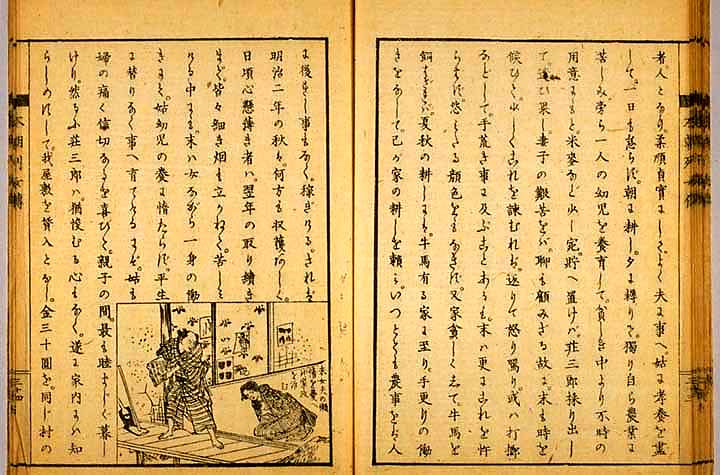 者人となり。柔順貞實にしてよく夫に事へ。姑に孝養を盡
して。一日も怠らず。朝に耕し。夕に耨りて。獨り自ら農業に
苦しみ。旁ら一人の幼児を養育して。貧しき中より不時の
用意にもと。米麥など少し宛貯へ置けバ。荘三郎操り出し
て。遣ひ果し。妻子の艱苦をバ。聊も顧みざる故。末も時を
候ひて。少しくこれを諫むれど。返りて怒り罵り。或ハ打擲
などして。手荒き事に及ぶことあるも。末ハ更にこれを忤
らはず。たる顔色をもなさず。又家貧しくして。牛馬を
飼はざれバ。夏秋の耕しにも。牛馬有る家に至り。手更りの働
きをなして。己が家の耕しを頼み。いつとても農事を人
に後れし事もなく。稼ぎける。されば
明治二年の秋ハ。何方も収獲あしく。
日頃心懸薄き者ハ。翌年の取り續き
まで。皆々細き烟も立かねて。苦しミ
ける中にも。末ハ女ながら一身の働
きにて。姑幼児の養に惰たらず。平生
に替りなく事へ育てたるにぞ。姑も
婦の痛く信切なるを喜びて。親子の間。最も睦ましく暮し
けり。然るに荘三郎ハ。猶悛むる心もなく。遂に家内にハ知
らしめずして。我屋敷を質入となし。金三十圓を。同じ村の
末女夫の
本朝列女傳